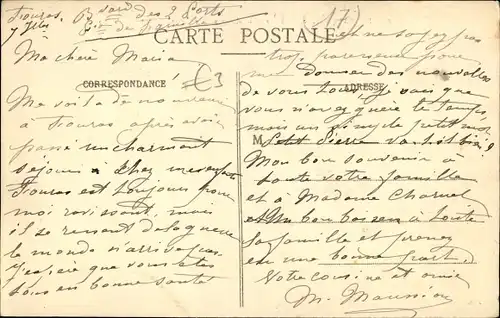 Fouras, Bvard des 2 Ports
(17)
CARTE POSTALE
Ma chère Maria
CORRESPONDANCE
€3
Me voilà de nouveau
à Fouras après avoir
passé un charmant
séjour chez mes enfants
Fouras est toujours pour
moi ravissant, mais
il se ressent de la guerre
le monde n'arrive pas
J'espère que vous êtes
tous en bonne santé
et ne soyez pas
trop paresseux pour
me donner des nouvelles
ADRESSE
de vous tous, je sais que
vous n'avez guère le temps
mais un simple petit mot
M
Petit Pierre va-t-il bien ?
Mon bon souvenir à
toute votre famille
et à Madame
et un bon baiser à toute
la famille et prenez
en une bonne part.
Votre cousine et amie
M.